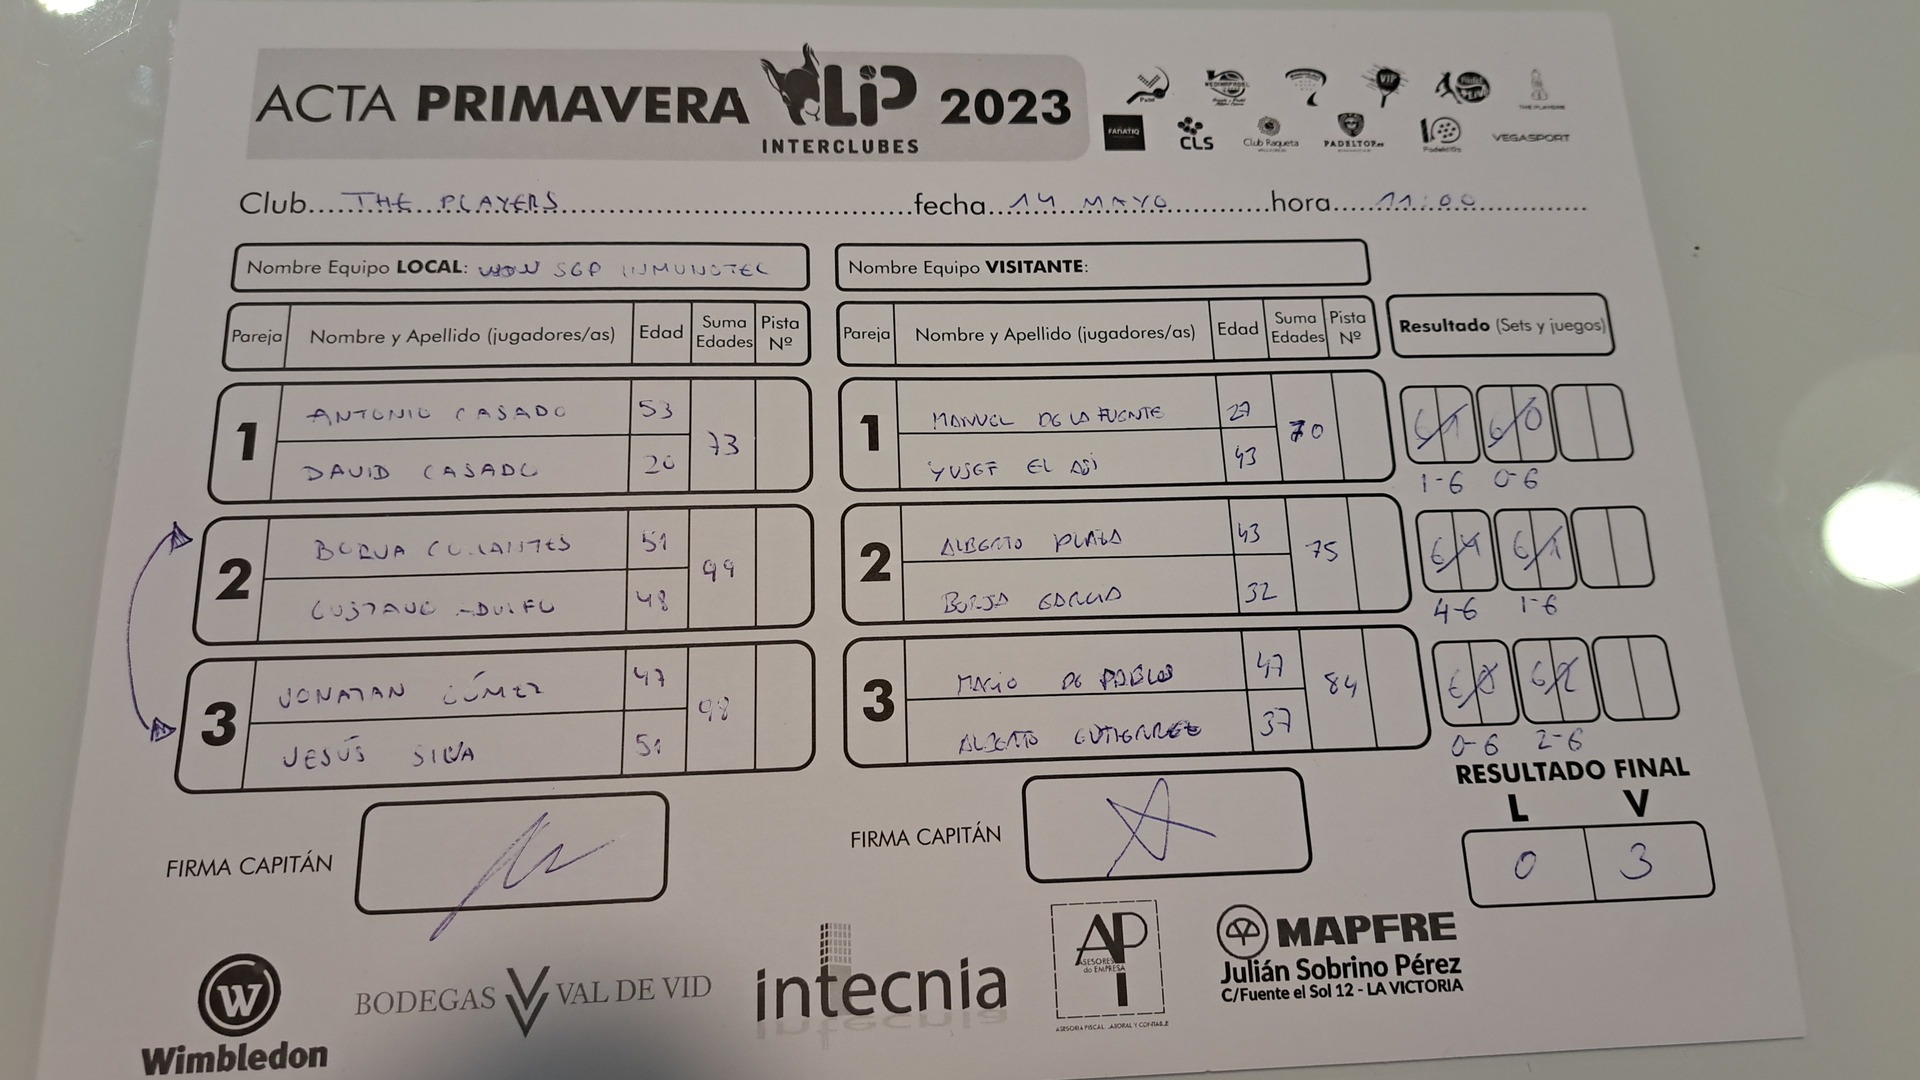 ACTA PRIMAVERA LIP 2023
INTERCLUBES
FANATIQ
CLS
Club Raqueta
PADELTOP.es
VEGASPORT
THE PLAYERS
VIP
Club THE PLAYERS fecha 14 MAYO hora 11:00
Nombre Equipo LOCAL: WON SGP INMUNOTEC
Nombre Equipo VISITANTE:
Pareja Nombre y Apellido (jugadores/as) Edad Suma Edades Pista Nº
Pareja Nombre y Apellido (jugadores/as) Edad Suma Edades Pista Nº
Resultado (Sets y juegos)
1 ANTONIO CASADO 53 73
DAVID CASADO 20
1 MANUEL DE LA FUENTE 27 70
YUSEF EL ASI 43
6 1 6 0
1-6 0-6
2 BORJA COLLANTES 51 99
GUSTAVO ADOLFO 48
2 ALBERTO PLAZA 43 75
BORJA GARCIA 32
6 4 6 1
4-6 1-6
3 JONATAN GÓMEZ 47 98
JESÚS SILVA 51
3 MARIO DE PABLOS 47 84
ALBERTO GUTIERREZ 37
6 0 6 2
0-6 2-6
RESULTADO FINAL
L V
0 3
FIRMA CAPITÁN
FIRMA CAPITÁN
W
Wimbledon
BODEGAS VAL DE VID
intecnia
API
ASESORES
de EMPRESA
ASESORIA FISCAL LABORAL Y CONTABLE
MAPFRE
Julián Sobrino Pérez
C/Fuente el Sol 12 - LA VICTORIA